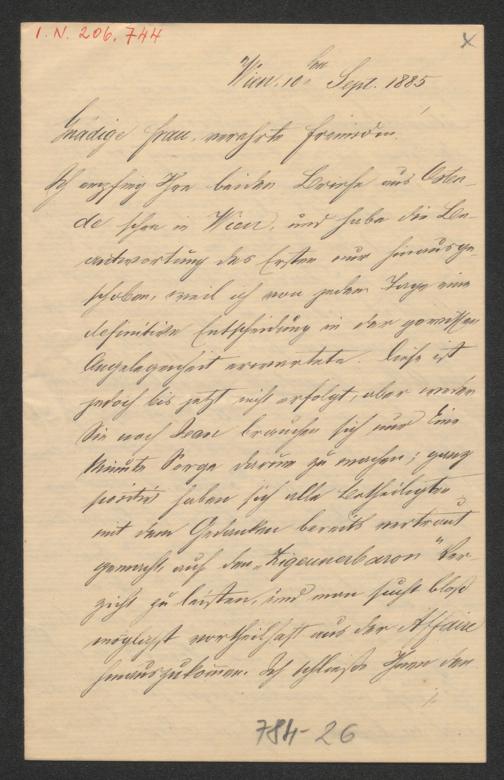 I. N. 206.744
x
Wien, 10ten Sept. 1885
Gnädige Frau, verehrte Freundin!
Ich empfing Ihre beiden Briefe aus Osten-
de schon in Wien, und habe die Be-
antwortung des Ersten nur hinausge-
schoben, weil ich von jedem Tage eine
definitive Entscheidung in der gewissen
Angelegenheit erwartete. Diese ist
jedoch bis jetzt nicht erfolgt, aber weder
Sie noch Jean brauchen sich nur Eine
Minute Sorge darum zu machen; ganz
positiv haben sich alle Betheiligten
mit dem Gedanken bereits vertraut
gemacht, auf den „Zigeunerbaron" Ver-
zicht zu leisten, und man sucht bloß
möglichst vortheilhaft aus der Affaire
herauszukommen. Ich schließe Ihnen den
784-26